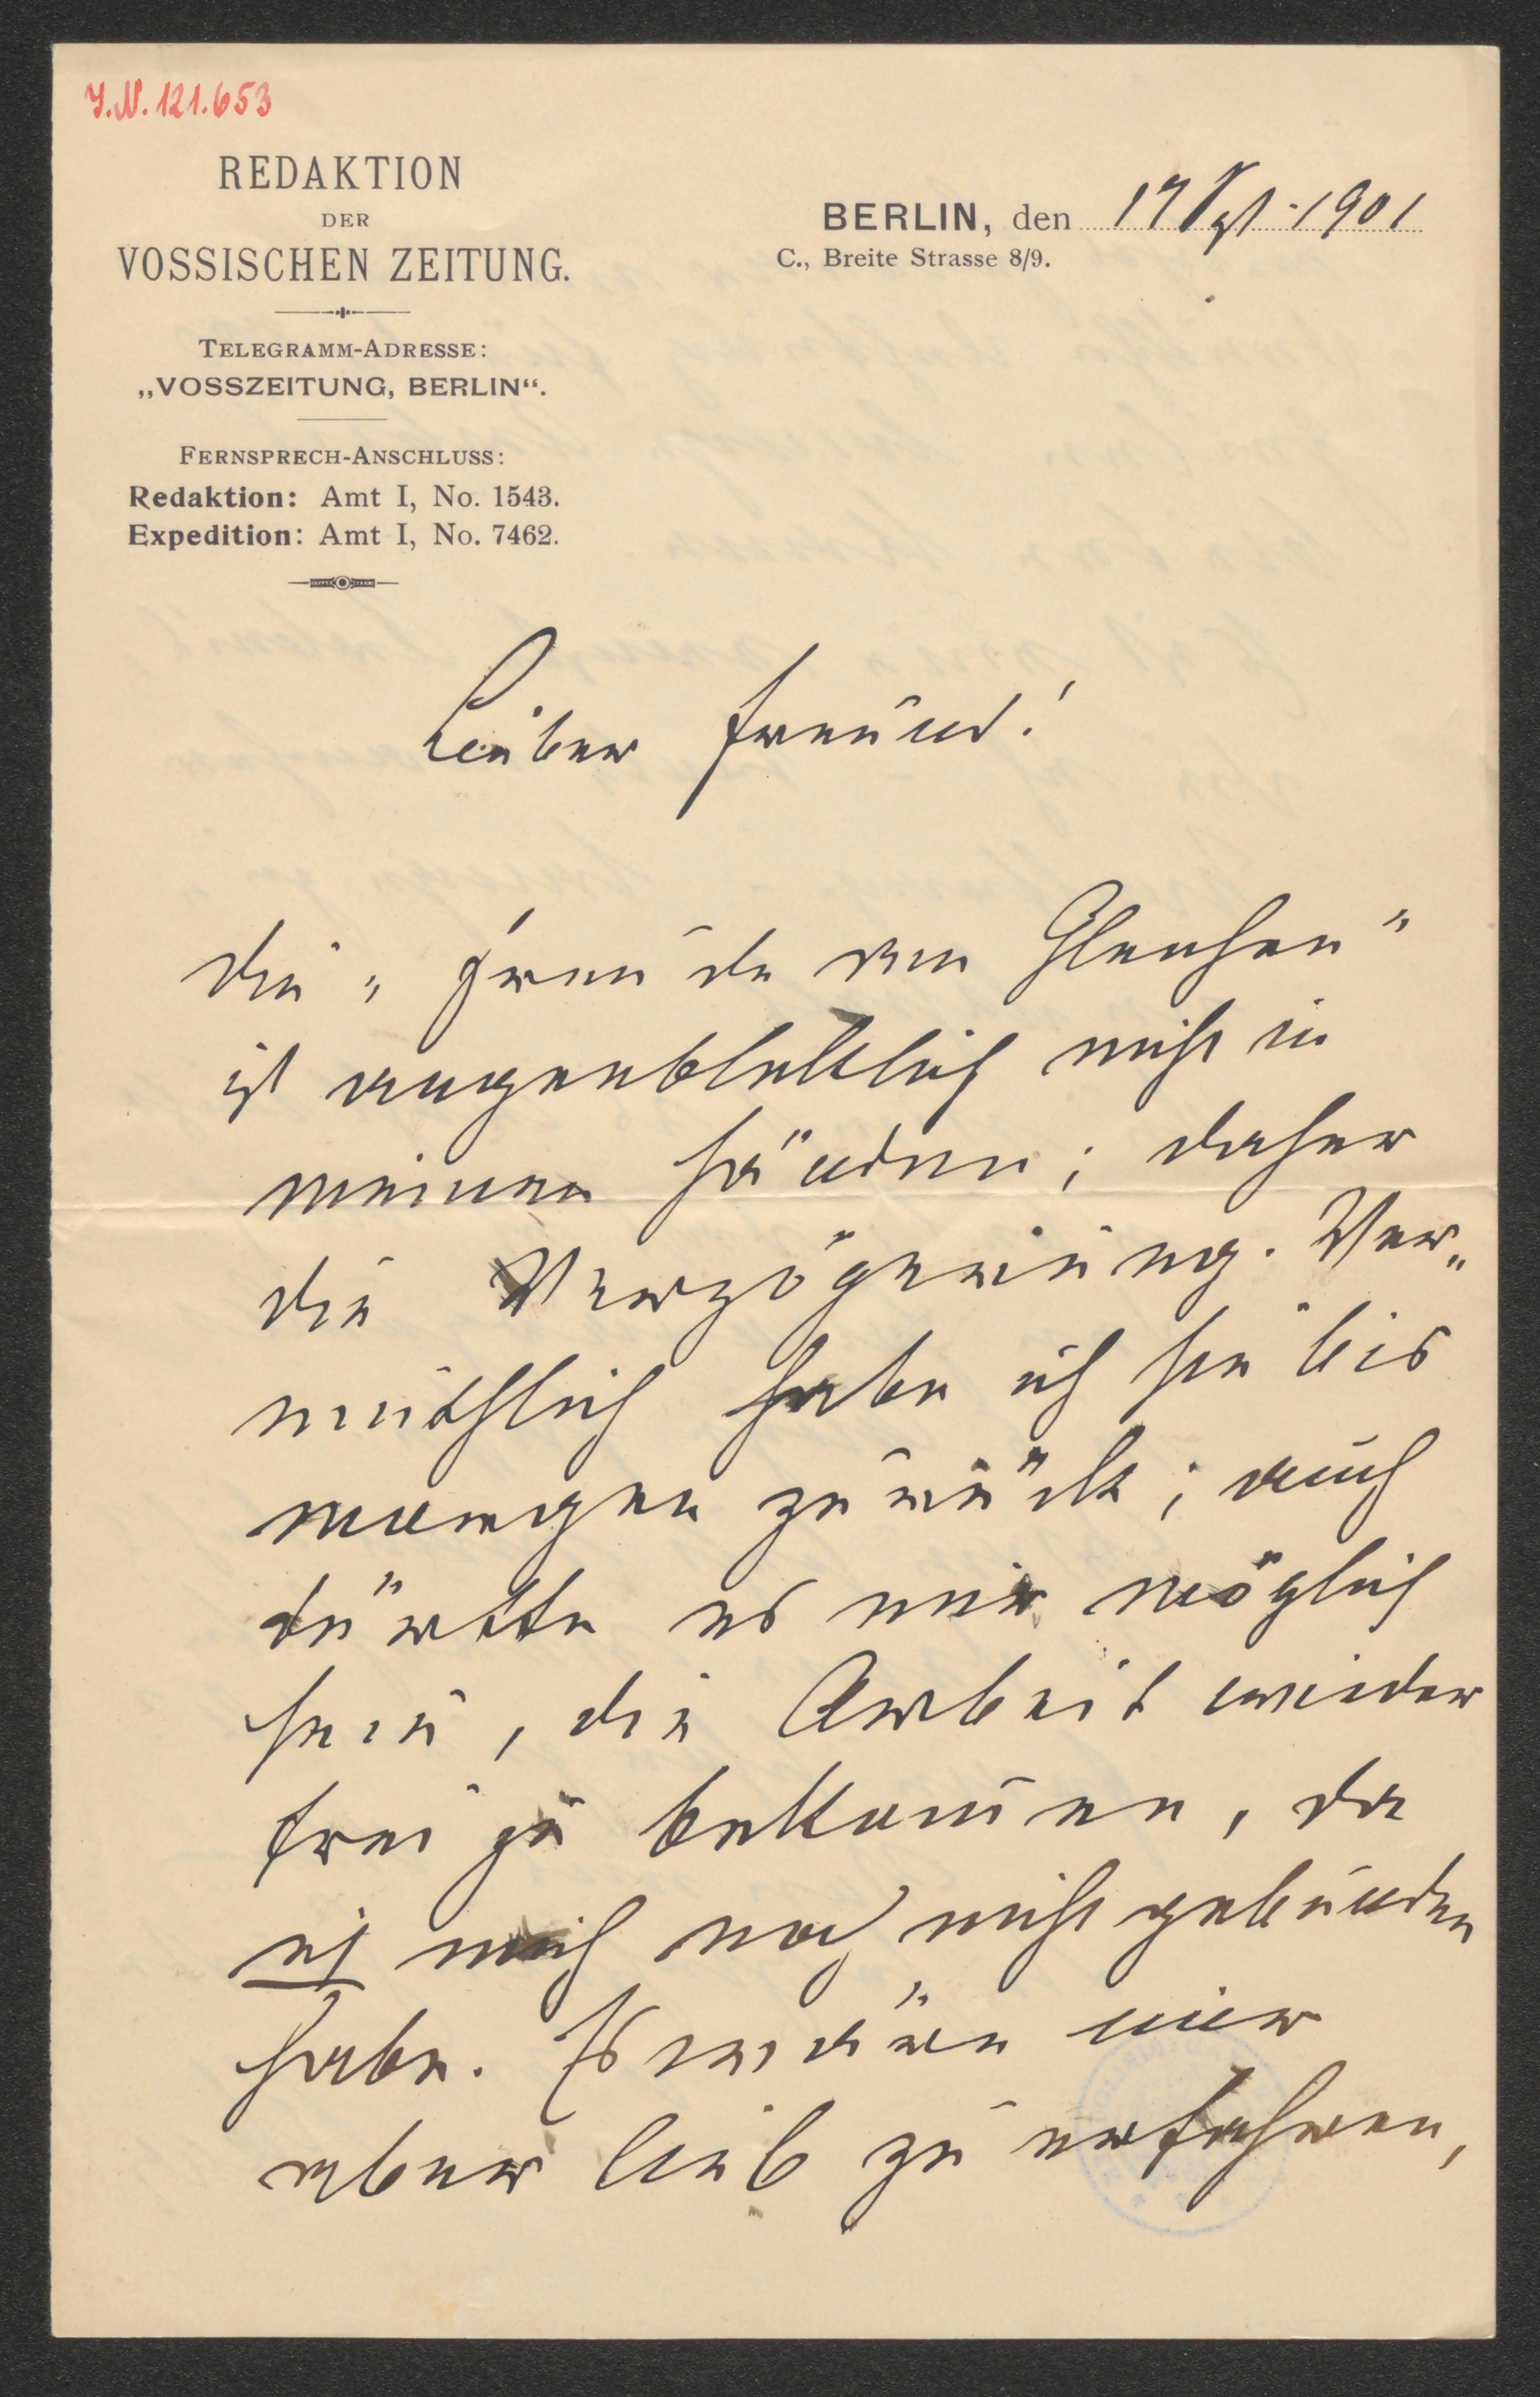 J.N. 121.653
REDAKTION
DER
VOSSISCHEN ZEITUNG.
TELEGRAMM-ADRESSE:
„VOSSZEITUNG, BERLIN“.
FERNSPRECH-ANSCHLUSS:
Redaktion: Amt I, No. 1543.
Expedition: Amt I, No. 7462.
BERLIN, den 17 Spt. 1901
C., Breite Strasse 8/9.
Lieber Freund!
die „Freude am
ist augenblicklich nicht in
meinen Händen; daher
die Verzögerung. Ver„
muthlich habe ich sie bis
morgen zurück; auch
dürfte es mir möglich
sein, die Arbeit wieder
frei zu bekommen, da
ich mich noch nicht gebunden
habe. Es wäre mir
aber lieb zu erfahren,